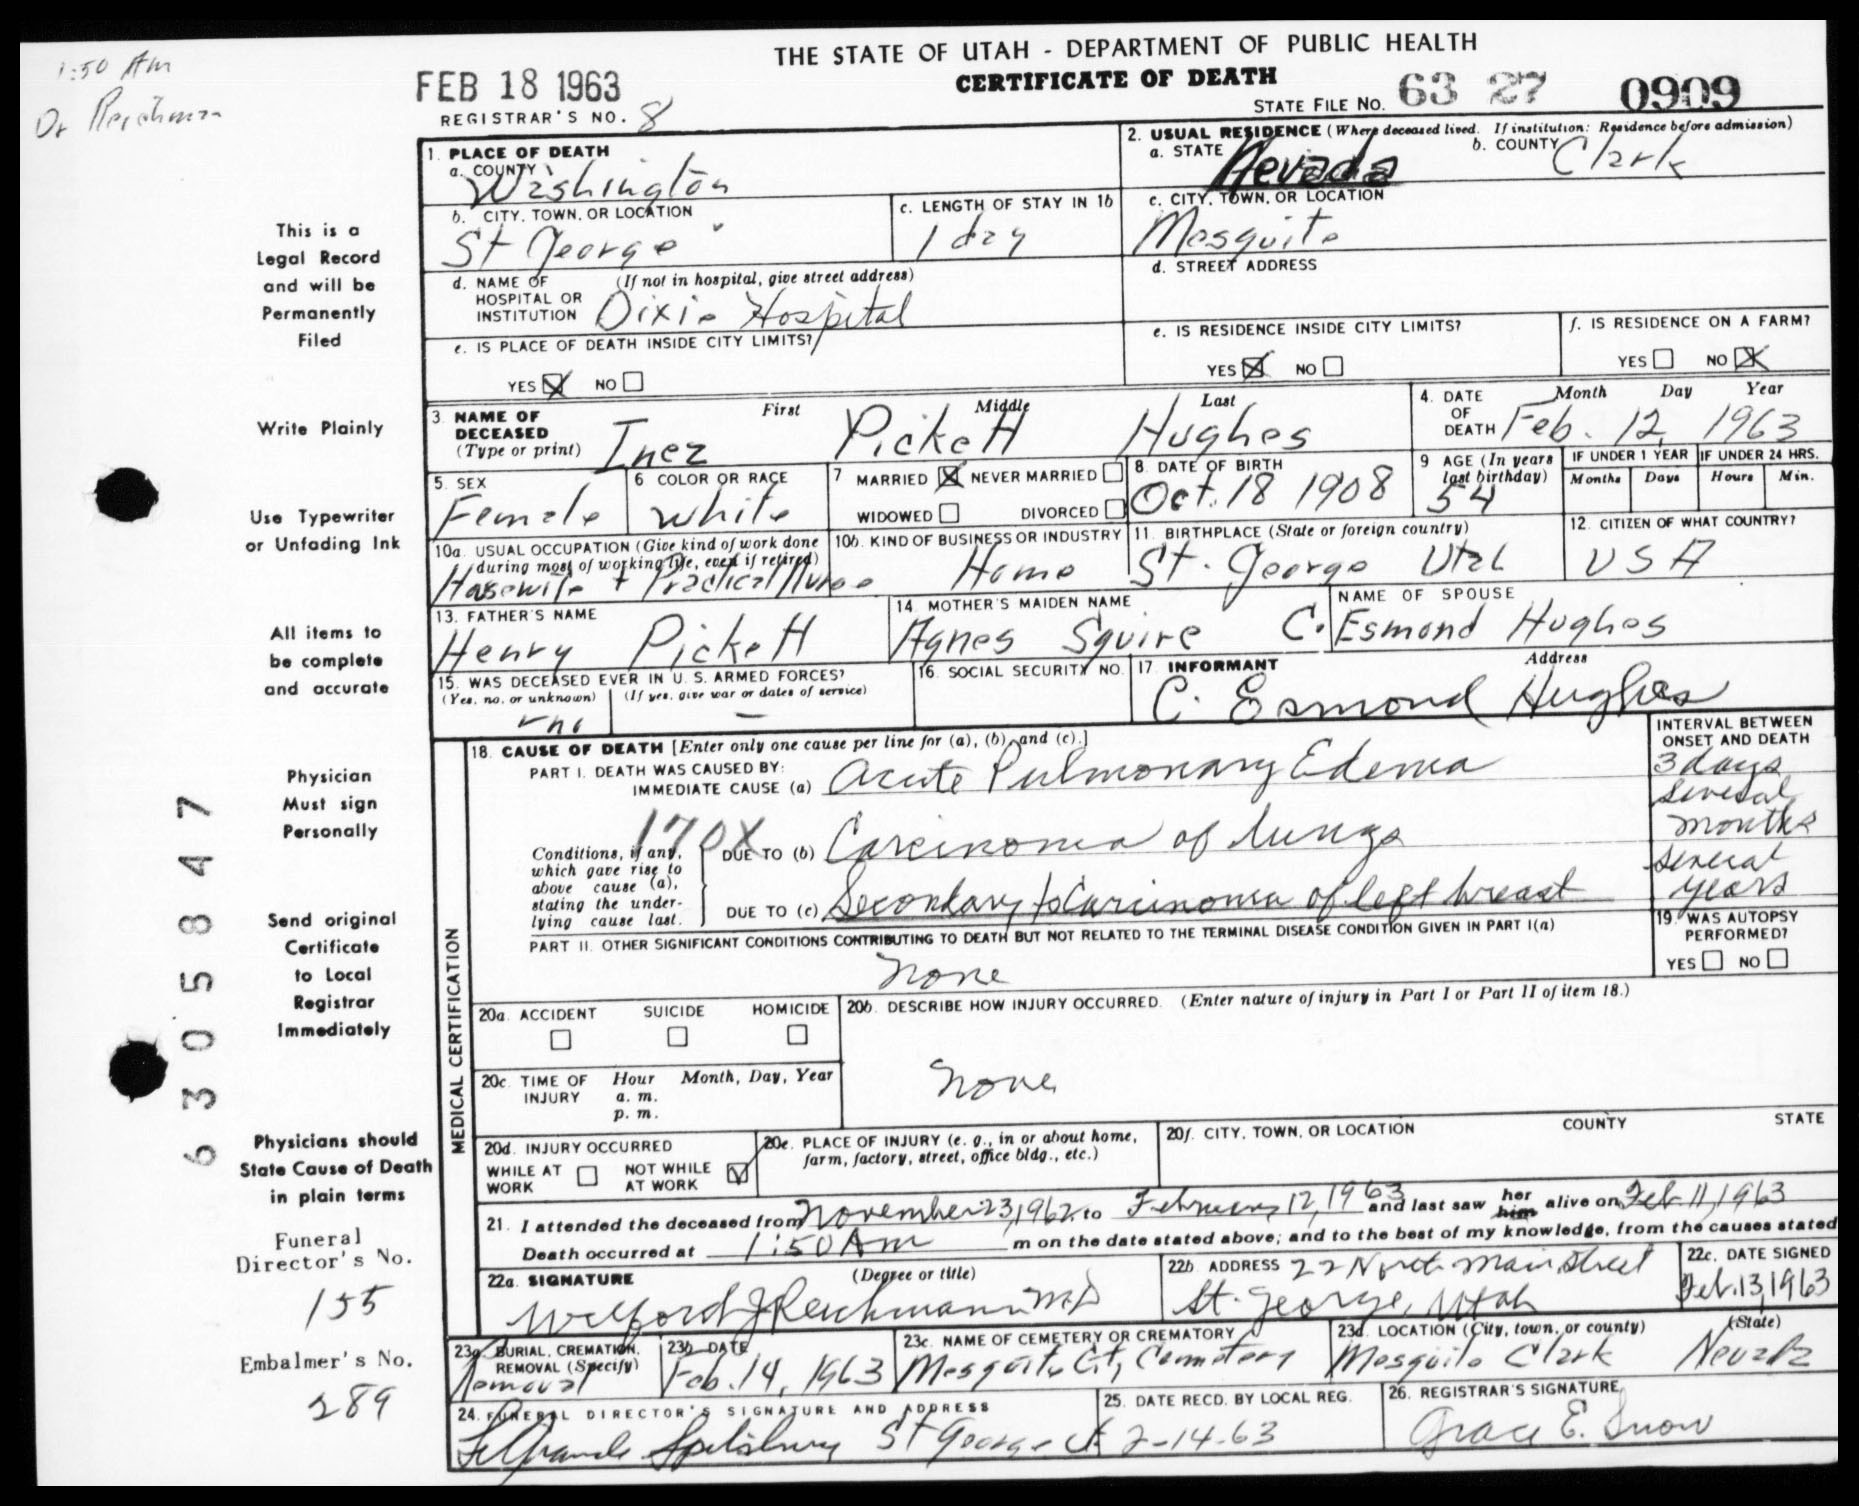 1:50 Am
Dr Reichman
THE STATE OF UTAH - DEPARTMENT OF PUBLIC HEALTH
CERTIFICATE OF DEATH
FEB 18 1963
REGISTRAR'S NO. 8
STATE FILE NO. 63 27 0909
This is a
Legal Record
and will be
Permanently
Filed
Write Plainly
Use Typewriter
or Unfading Ink
All items to
be complete
and accurate
Physician
Must sign
Personally
Send original
Certificate
to Local
Registrar
Immediately
Physicians should
State Cause of Death
in plain terms
Funeral
Director's No.
155
Embalmer's No.
289
6305847
1. PLACE OF DEATH
a. COUNTY
Washington
2. USUAL RESIDENCE (Where deceased lived. If institution: Residence before admission)
a. STATE Nevada b. COUNTY Clark
b. CITY, TOWN, OR LOCATION
St George
c. LENGTH OF STAY IN 1b
1 day
c. CITY, TOWN, OR LOCATION
Mesquite
d. NAME OF HOSPITAL OR INSTITUTION (If not in hospital, give street address)
Dixie Hospital
d. STREET ADDRESS
e. IS PLACE OF DEATH INSIDE CITY LIMITS?
YES NO
e. IS RESIDENCE INSIDE CITY LIMITS?
YES NO
f. IS RESIDENCE ON A FARM?
YES NO
3. NAME OF DECEASED (Type or print) First Middle Last
Inez Pickett Hughes
4. DATE OF DEATH Month Day Year
Feb. 12, 1963
5. SEX
Female
6 COLOR OR RACE
White
7 MARRIED NEVER MARRIED
WIDOWED DIVORCED
8. DATE OF BIRTH
Oct. 18 1908
9 AGE (In years last birthday)
54
IF UNDER 1 YEAR
Months Days
IF UNDER 24 HRS.
Hours Min.
10a. USUAL OCCUPATION (Give kind of work done during most of working life, even if retired)
Housewife + Practical Nurse
10b. KIND OF BUSINESS OR INDUSTRY
Home
11. BIRTHPLACE (State or foreign country)
St. George Utah
12. CITIZEN OF WHAT COUNTRY?
USA
13. FATHER'S NAME
Henry Pickett
14. MOTHER'S MAIDEN NAME
Agnes Squire
NAME OF SPOUSE
C. Esmond Hughes
15. WAS DECEASED EVER IN U. S. ARMED FORCES?
(Yes, no, or unknown) (If yes, give war or dates of service)
no —
16. SOCIAL SECURITY NO.
17. INFORMANT Address
C. Esmond Hughes
MEDICAL CERTIFICATION
18. CAUSE OF DEATH [Enter only one cause per line for (a), (b), and (c).]
INTERVAL BETWEEN ONSET AND DEATH
PART I. DEATH WAS CAUSED BY:
IMMEDIATE CAUSE (a) Acute Pulmonary Edema
3 days
170X
Conditions, if any, which gave rise to above cause (a), stating the underlying cause last.
DUE TO (b) Carcinoma of lungs
several months
DUE TO (c) Secondary to Carcinoma of left breast
several years
PART II. OTHER SIGNIFICANT CONDITIONS CONTRIBUTING TO DEATH BUT NOT RELATED TO THE TERMINAL DISEASE CONDITION GIVEN IN PART I(a)
none
19. WAS AUTOPSY PERFORMED?
YES NO
20a. ACCIDENT SUICIDE HOMICIDE
20b. DESCRIBE HOW INJURY OCCURRED. (Enter nature of injury in Part I or Part II of item 18.)
none
20c. TIME OF INJURY Hour Month, Day, Year
a. m.
p. m.
20d. INJURY OCCURRED
WHILE AT WORK NOT WHILE AT WORK
20e. PLACE OF INJURY (e. g., in or about home, farm, factory, street, office bldg., etc.)
20f. CITY, TOWN, OR LOCATION COUNTY STATE
21. I attended the deceased from November 23, 1962 to February 12, 1963 and last saw her him alive on Feb 11, 1963
Death occurred at 1:50 Am m on the date stated above; and to the best of my knowledge, from the causes stated
22a. SIGNATURE (Degree or title)
Wilford J Reichmann MD
22b ADDRESS 22 North Main Street
St. George, Utah
22c. DATE SIGNED
Feb. 13, 1963
23a. BURIAL, CREMATION, REMOVAL (Specify)
Removal
23b DATE
Feb. 14, 1963
23c. NAME OF CEMETERY OR CREMATORY
Mesquite City Cemetery
23d. LOCATION (City, town, or county) (State)
Mesquite Clark Nevada
24. FUNERAL DIRECTOR'S SIGNATURE AND ADDRESS
Spilsbury St George Ut
25. DATE RECD. BY LOCAL REG.
2-14-63
26. REGISTRAR'S SIGNATURE
Grace E. Snow